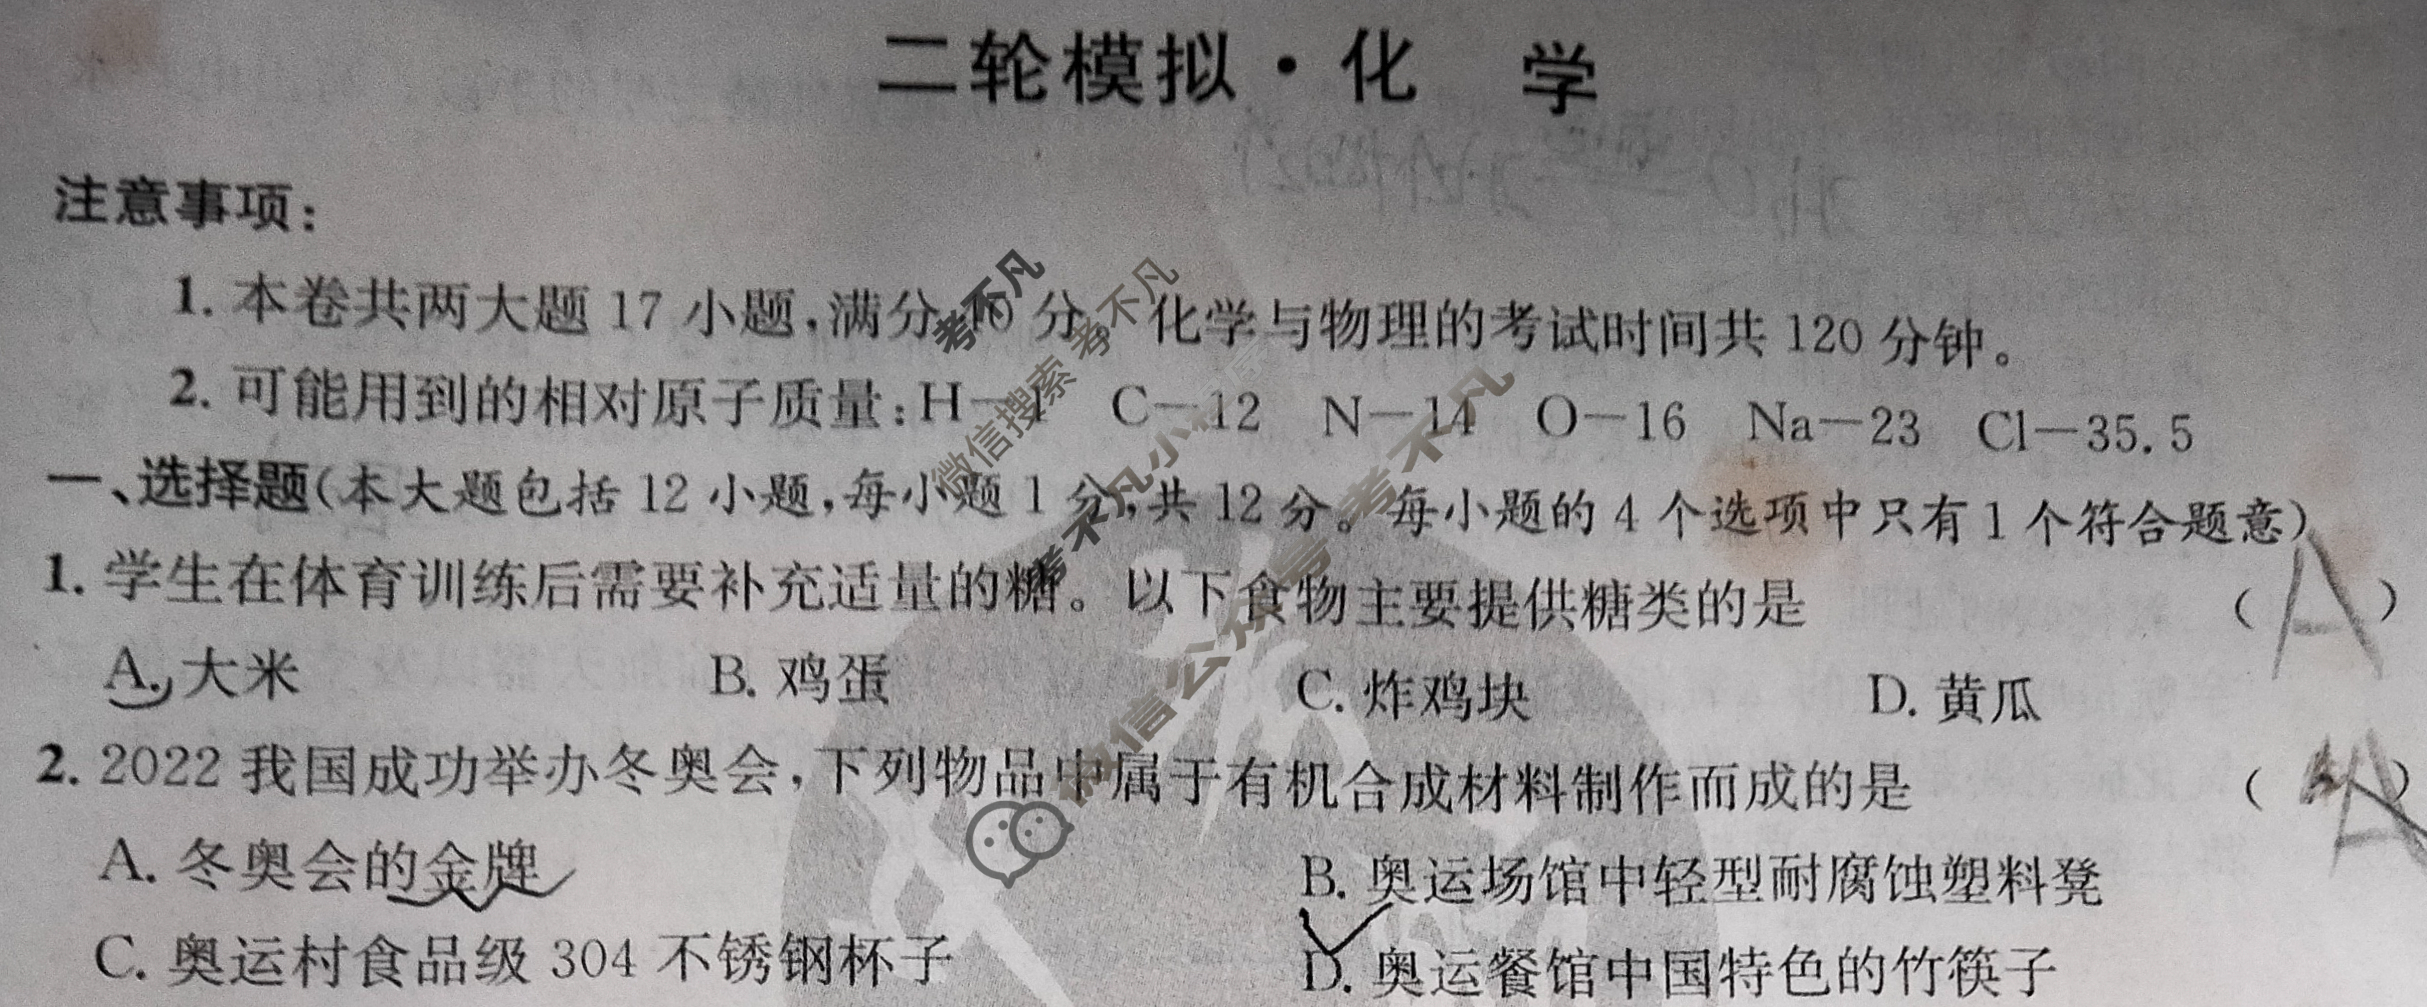 二轮模拟·化 学
注意事项：
1. 本卷共两大题 17 小题，满分 40 分。化学与物理的考试时间共 120 分钟。
2. 可能用到的相对原子质量：H—1 C—12 N—14 O—16 Na—23 Cl—35.5
一、选择题（本大题包括 12 小题，每小题 1 分，共 12 分。每小题的 4 个选项中只有 1 个符合题意）
1. 学生在体育训练后需要补充适量的糖。以下食物主要提供糖类的是 （ A ）
A. 大米 B. 鸡蛋 C. 炸鸡块 D. 黄瓜
2. 2022 我国成功举办冬奥会，下列物品中属于有机合成材料制作而成的是 （ A ）
A. 冬奥会的金牌 B. 奥运场馆中轻型耐腐蚀塑料凳
C. 奥运村食品级 304 不锈钢杯子 D. 奥运餐馆中国特色的竹筷子
考不凡
微信搜索 考不凡
考不凡小
微信公众号 考不凡